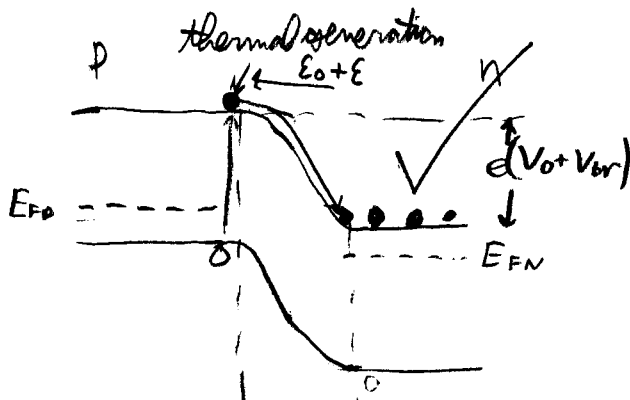 thermal generation
p
ε₀+ε
n
e(V₀+Vbr)
EFp
EFN